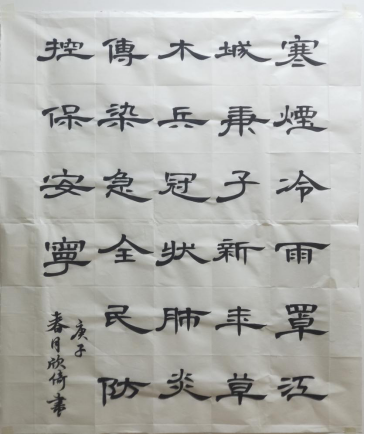 寒煙冷雨罩江
城庚子新年草
木兵冠狀肺炎
傳染急全民防
控保安寧
庚子
春月欣倚書